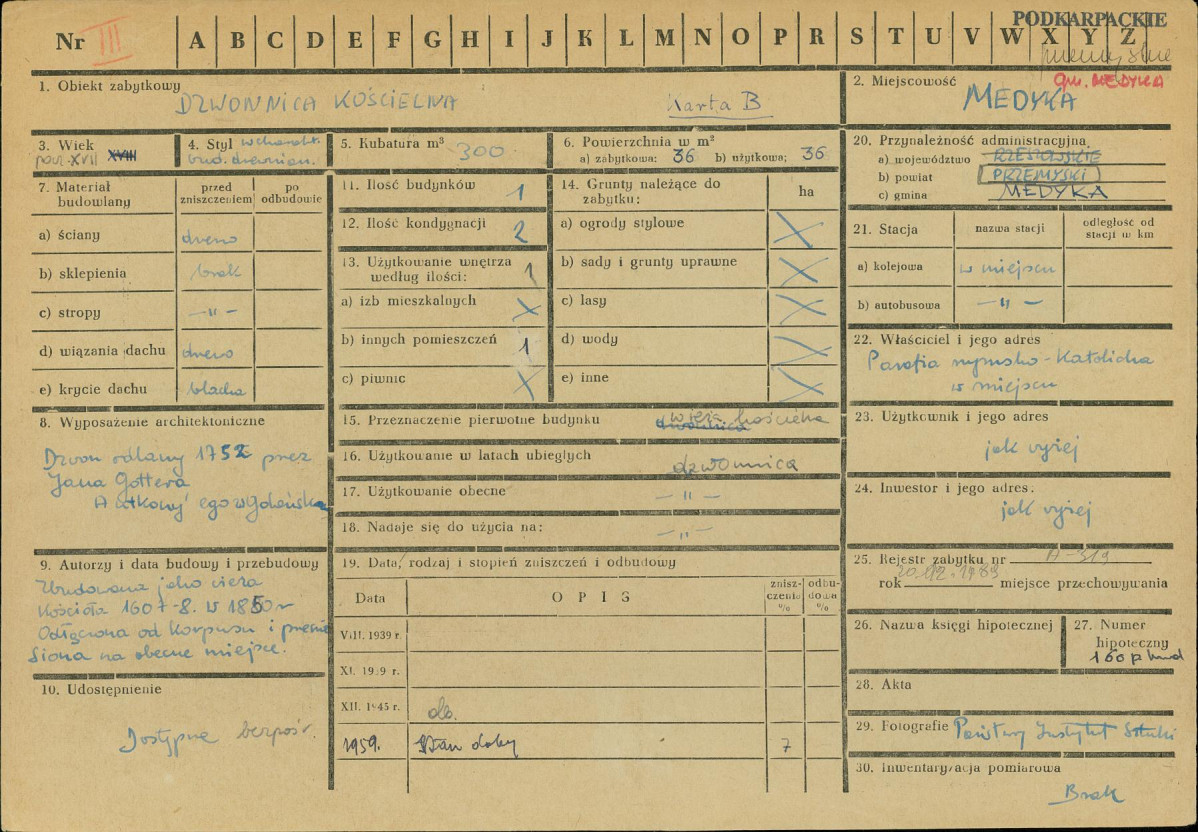 Nr III A B C D E F G H I J K L M N O P R S T U V W X Y Z
PODKARPACKIE
gm. MEDYKA
1. Obiekt zabytkowy
DZWONNICA KOŚCIELNA Karta B
2. Miejscowość
MEDYKA
3. Wiek
pocz. XVII XVIII
4. Styl w charakt.
bud. drewnian.
5. Kubatura m³ 300
6. Powierzchnia w m²
a) zabytkowa: 36 b) użytkowa; 36
7. Materiał budowlany
przed zniszczeniem
po odbudowie
a) ściany drewno
b) sklepienia brak
c) stropy -"-
d) wiązania dachu drewno
e) krycie dachu blacha
8. Wyposażenie architektoniczne
Dzwon odlany 1752 przez
Jana Gottera
ego w Gdańsku
9. Autorzy i data budowy i przebudowy
Zbudowana jako wieża
Kościoła 1607-8. W 1850 r
Odłączona od Korpusu i przenie
siona na obecne miejsce.
10. Udostępnienie
Dostępne bezpośr.
11. Ilość budynków 1
12. Ilość kondygnacji 2
13. Użytkowanie wnętrza
według ilości: 1
a) izb mieszkalnych X
b) innych pomieszczeń 1
c) piwnic X
14. Grunty należące do
zabytku: ha
a) ogrody stylowe X
b) sady i grunty uprawne X
c) lasy X
d) wody X
e) inne X
15. Przeznaczenie pierwotne budynku dzwonnica wieża kościelna
16. Użytkowanie w latach ubiegłych dzwonnica
17. Użytkowanie obecne -"-
18. Nadaje się do użycia na: -"-
19. Data, rodzaj i stopień zniszczeń i odbudowy
Data OPIS znisz-czenia % odbu-dowa %
VIII. 1939 r.
XI. 1939 r.
XII. 1945 r. db.
1959. Stan dobry 7
20. Przynależność administracyjna
a) województwo RZESZOWSKIE
b) powiat PRZEMYSKI
c) gmina MEDYKA
21. Stacja
nazwa stacji
odległość od
stacji w km
a) kolejowa w miejscu
b) autobusowa -"-
22. Właściciel i jego adres
Parafia rzymsko-Katolicka
w miejscu
23. Użytkownik i jego adres
jak wyżej
24. Inwestor i jego adres.
jak wyżej
25. Rejestr zabytku nr A-319
rok 20.12.1989 miejsce przechowywania
26. Nazwa księgi hipotecznej
27. Numer
hipoteczny
28. Akta
29. Fotografie Państwowy Instytut Sztuki
30. Inwentaryzacja pomiarowa
Brak